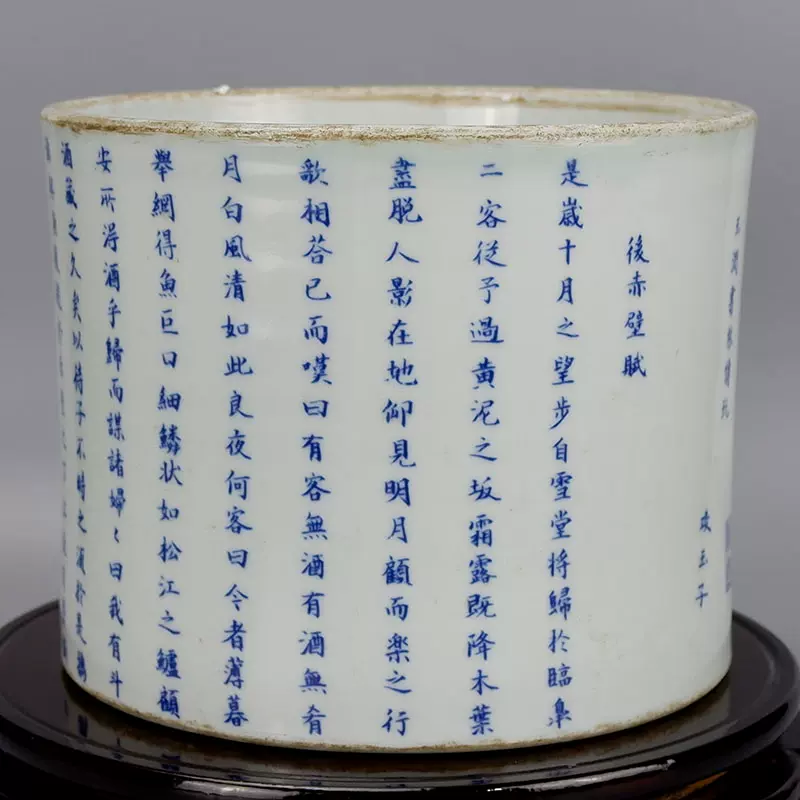 玉子
後赤壁賦
是歲十月之望步自雪堂将歸於臨皐
二客從予過黄泥之坂霜露既降木葉
盡脱人影在地仰見明月顧而楽之行
歌相荅已而嘆曰有客無酒有酒無肴
月白風清如此良夜何客曰今者薄暮
舉網得魚巨口細鱗状如松江之鱸顧
安所得酒乎歸而謀諸婦々曰我有斗
酒藏之久矣以待子不時之湏於是携